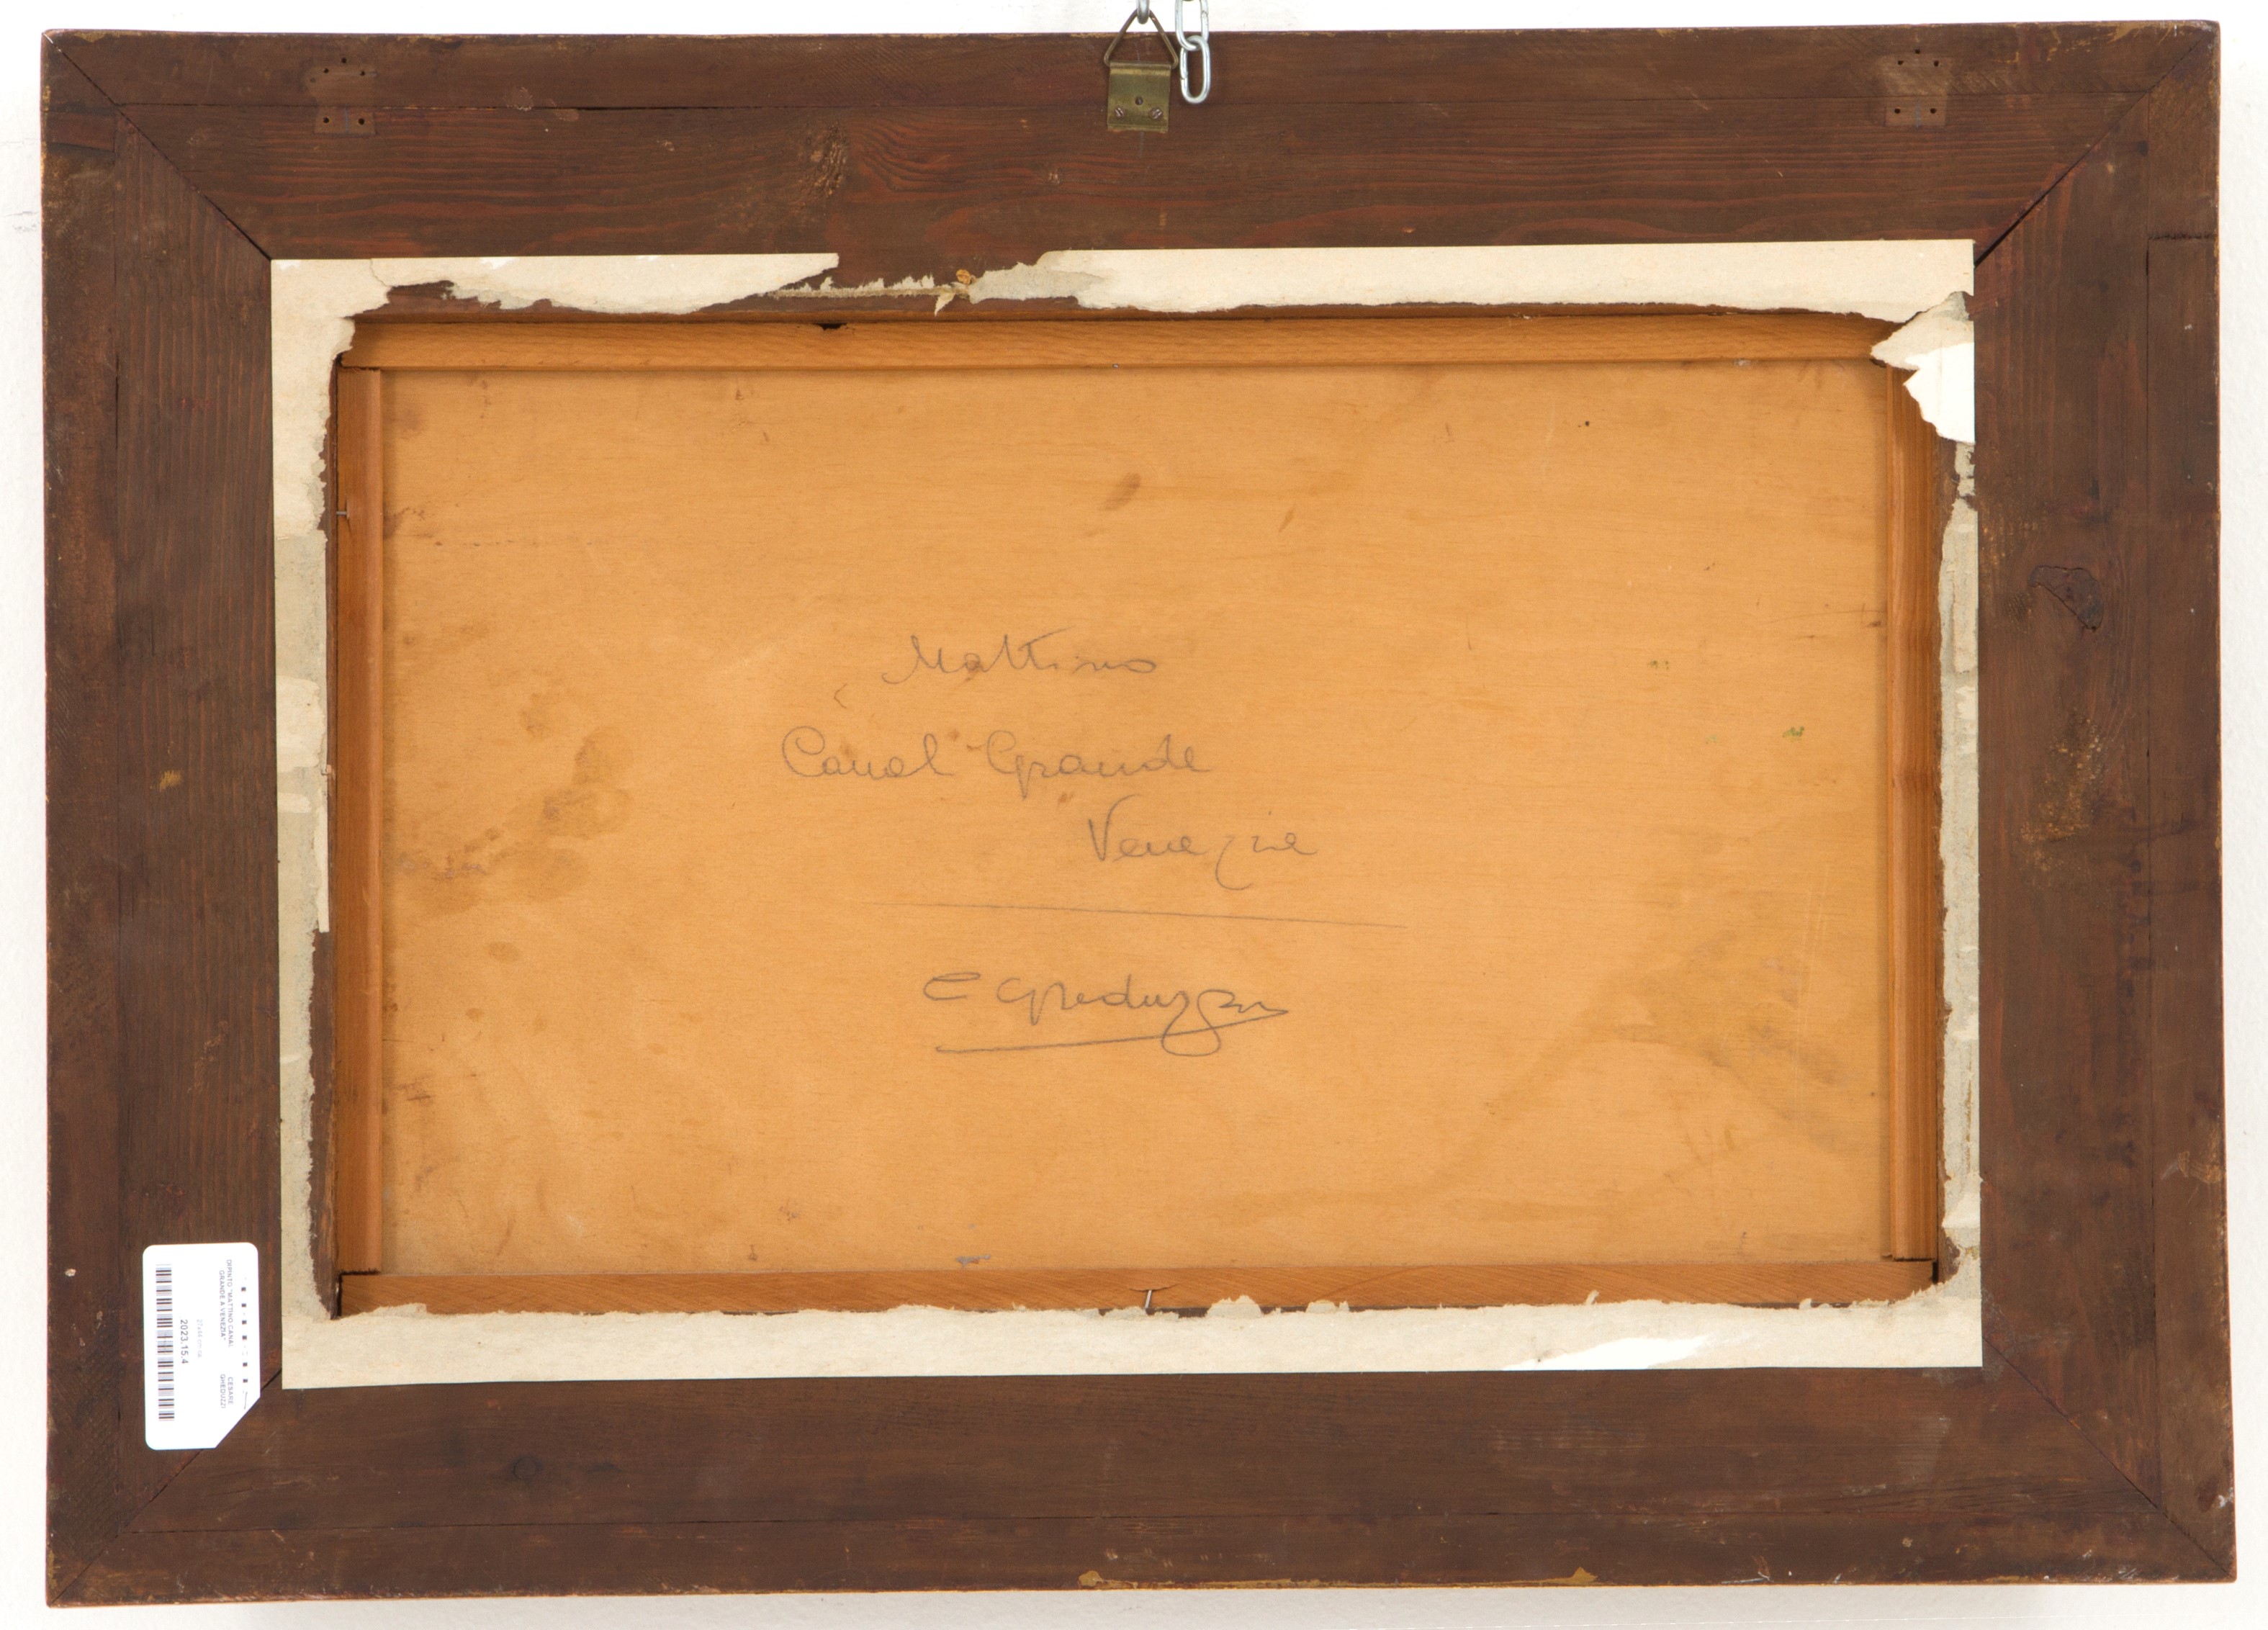 Mattino
Canal Grande
Venezia
C Gheduzzi
DIPINTO "MATTINO CANAL
GRANDE A VENEZIA"
CESARE
GHEDUZZI
2023.15.4